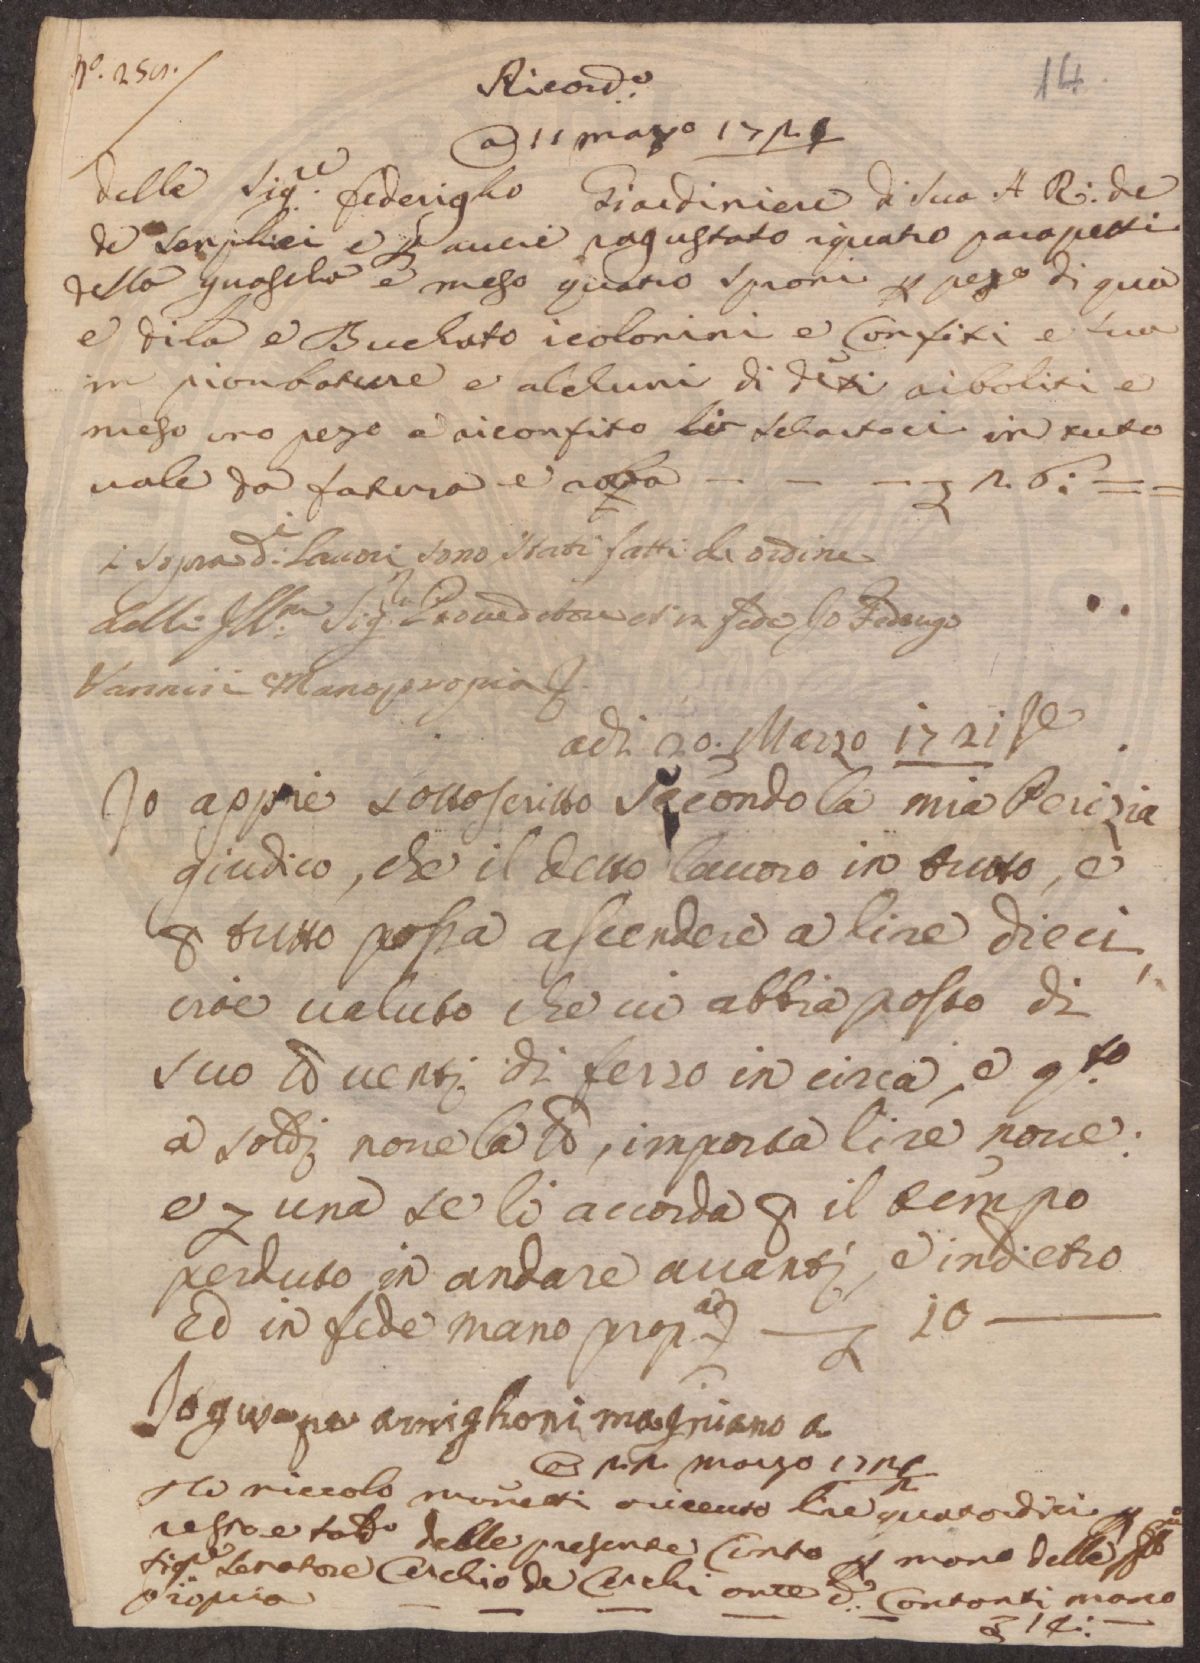 Nº. 250.
14.
Ricordº
a 11 marzo 1721
delle Sig.re federigho Giardiniere di Sua A R: de
de senplici e p avere ragustato iquatro parapetti
della e meso quatro sproni p pezo di qua
e di la e Buchato icolonini e Confiti e sua
in pionbature e alchuni di deti riboliti e
meso uno pezo e riconfito li in tuto
vale da fatura e roba — — — 26: ==
i sopra d.i lavori sono stati fatti de ordine
delli Ill.mo Sig.re Proveditore et in fede Io Federigo
Vannini Manopropria
adi 20. Marzo 1721
Io appiè sottoscritto secondo la mia Perizia
giudico, che il detto lavoro in tutto, e
p tutto possa ascendere a lire dieci
cioè valuto che vi abbia posto di
suo lb venti di ferro in circa, e q.to
a soldi nove la lb, importa lire nove:
e una se li accorda p il tempo
perduto in andare avanti, e indietro
Ed in fede mano prop.a — 10 —
Io armiglioni magniano
a 22 marzo 1721
Io niccolo auto lire quatordici p
resto e saldo delle presente Conto p mano delle
Sig.re Senatore Cerchio de Cerchi Contanti mano
propria — — — — 14: —